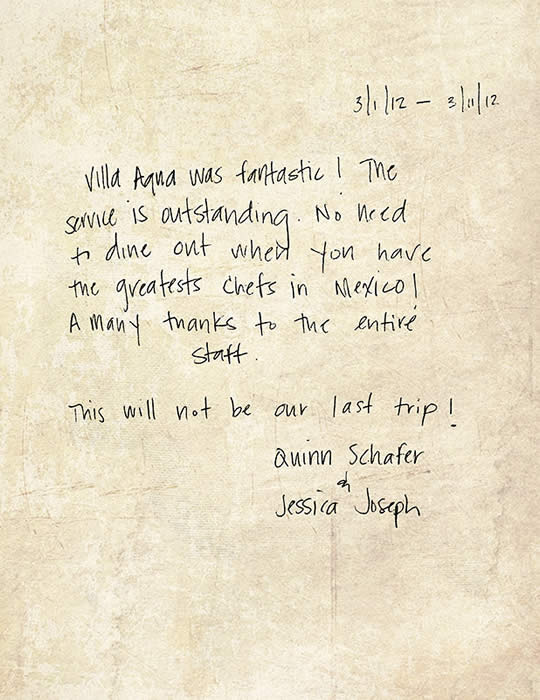 3/1/12 – 3/11/12
Villa Aqua was fantastic! The
service is outstanding. No need
to dine out when you have
the greatests chefs in Mexico!
A many thanks to the entire
staff.
This will not be our last trip!
Quinn Schafer
&
Jessica Joseph